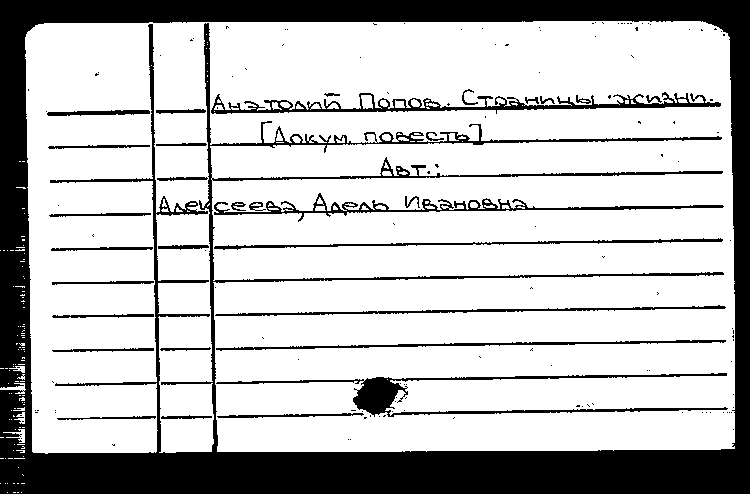 Анатолий Попов. Страницы жизни.
[Докум. повесть]
Авт.:
Алексеева, Адель Ивановна.